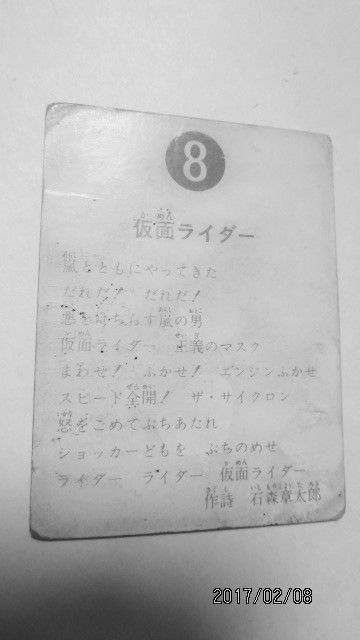 8
仮面ライダー
嵐とともにやってきた
だれだ！ だれだ！
悪をけちらす嵐の男
仮面ライダー 正義のマスク
まわせ！ ふかせ！ エンジンふかせ
スピード全開！ ザ・サイクロン
怒をこめてぶちあたれ
ショッカーどもを ぶちのめせ
ライダー ライダー 仮面ライダー
作詩 石森章太郎
2017/02/08